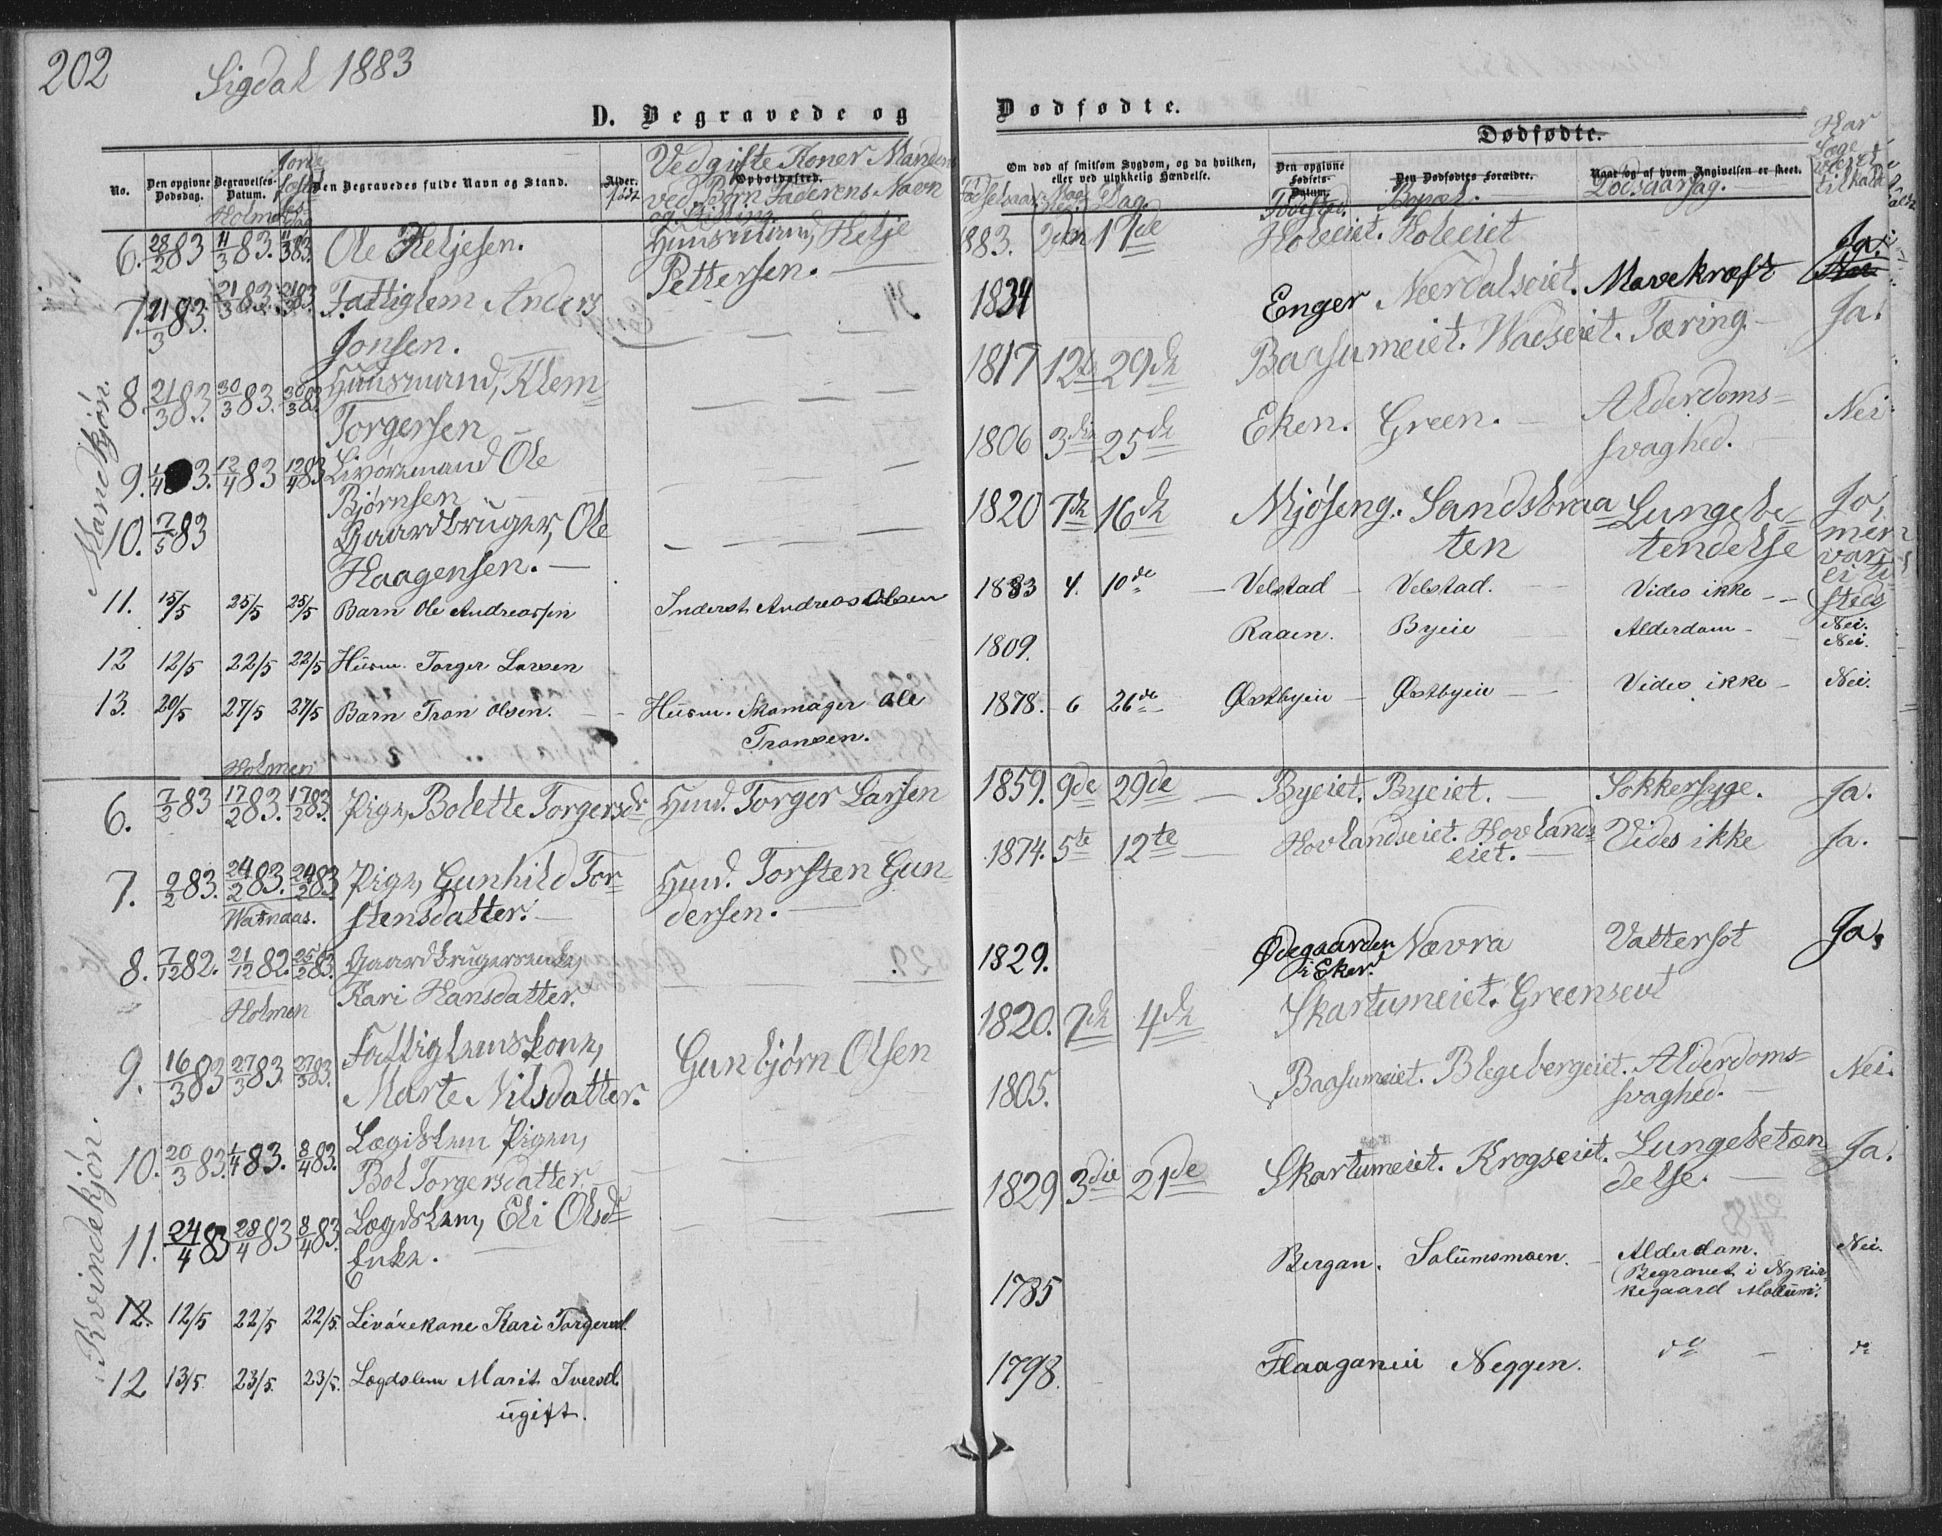 202
Sigdal 1883
D. Begravede og
Dødfødte.
No.
Den opgivne Dødsdag.
Begravelses-Datum.
Den Begravedes fulde Navn og Stand.
Alder.
født
Opholdssted.
Ved gifte Koner Mandens
ved Børn Faderens Navn
og Stilling
Om død af smitsom Sygdom, og da hvilken,
eller ved ulykkelig Hændelse.
Dag
Dødfødte.
Den opgivne Fødsels-Datum.
Den Dødfødtes Forældre.
Naar og af hvem Angivelsen er skeet.
Fødested.
Bopæl.
Dødsaarsag.
Har
Læge
været
tilkaldt
Holmen
Mandkjøn.
6. 28/2 83 11/3 83. 11/3 83. Ole Heljesen. Huusmand, Helje 1883. 2den 17de Holeeiet. Holeeiet Ja.
Pettersen.
7. 21/3 83. 21/3 83. 21/3 83. Fattiglem Anders 1834 Enger Neerdalseiet. Mavekræft
Jonsen.
8. 21/3 83. 30/3 83. 30/3 83. Huusmand, Klem 1817 12te 29de Baasumeiet. Waeseiet. Tæring. Ja.
Torgersen
9. 12/4 83 12/4 83 Livøremand Ole 1806 3die 25de Eken. Green. Alderdoms=
Bjørnsen svaghed. Nei.
10. 7/5 83 Gaardbruger, Ole 1820 7de 16de Mjøseng. Sandsbraa Lungebe-
Haagensen. ten tendelse Ja,
men
var
ei til
sted
11. 15/5 25/5 25/5 Barn Ole Andreassen Inderst Andreas Olsen 1883 4. 10de Velstad Velstad. Vides ikke Nei.
12 12/5 22/5 22/5 Husm. Torger Larsen 1809. Raaen. Byeie Alderdom Nei.
13. 20/5 27/5 27/5 Barn Tron Olsen. Husm. Skomager Ole 1878. 6 26de Østbyeie Østbyeie Vides ikke Nei.
Tronsen.
Holmen
Kvindekjøn.
6. 7/2 83 17/2 83. 17/2 83. Pige, Bolette Torgersdr Hmd. Torger Larsen 1859. 9de 29de Byeiet. Byeiet. Sokkersyge. Ja.
7. 9/2 83. 24/2 83. 24/2 83 Pige, Gunhild Tor- Hmd. Torsten Gun- 1874. 5te 12te Hovlandseiet. Hovlands Vides ikke Ja.
stensdatter. dersen. eiet.
Watnaas.
8. 7/12 82. 21/12 82. 25/2 83. Gaardbrugerenke, 1829. Ødegaarden Nævra Vattersot Ja.
Kari Hansdatter. i Eker.
Holmen
1820. 7de 4de Skartumeiet. Greenseut
9. 16/3 83 27/3 83 27/3 83. Fattiglemskone, Gunbjørn Olsen 1805. Baasumeiet. Blegebergeiet. Alderdoms= Nei.
Marte Nilsdatter. svaghed.
10. 20/3 83. 1/4 83. 8/4 83. Lægdslem Pigen, 1829 3die 21de Skartumeiet. Krogseiet. Lungebetæn Ja.
Bol Torgersdatter delse.
11. 24/4 83 28/4 83 8/4 83. Lægdslem, Eli Olsdr 1785 Bergan. Solumsmoen. Alderdom. Nei.
Enke. (Begravet i Nykir-
kegaard Modum.
12. 12/5 22/5 22/5. Livørekone Kari Torgersd. 1798. Flaaganeie Neggen. do do
12 13/5. 23/5. 23/5. Lægdslem Marit Iversd.
ugift.